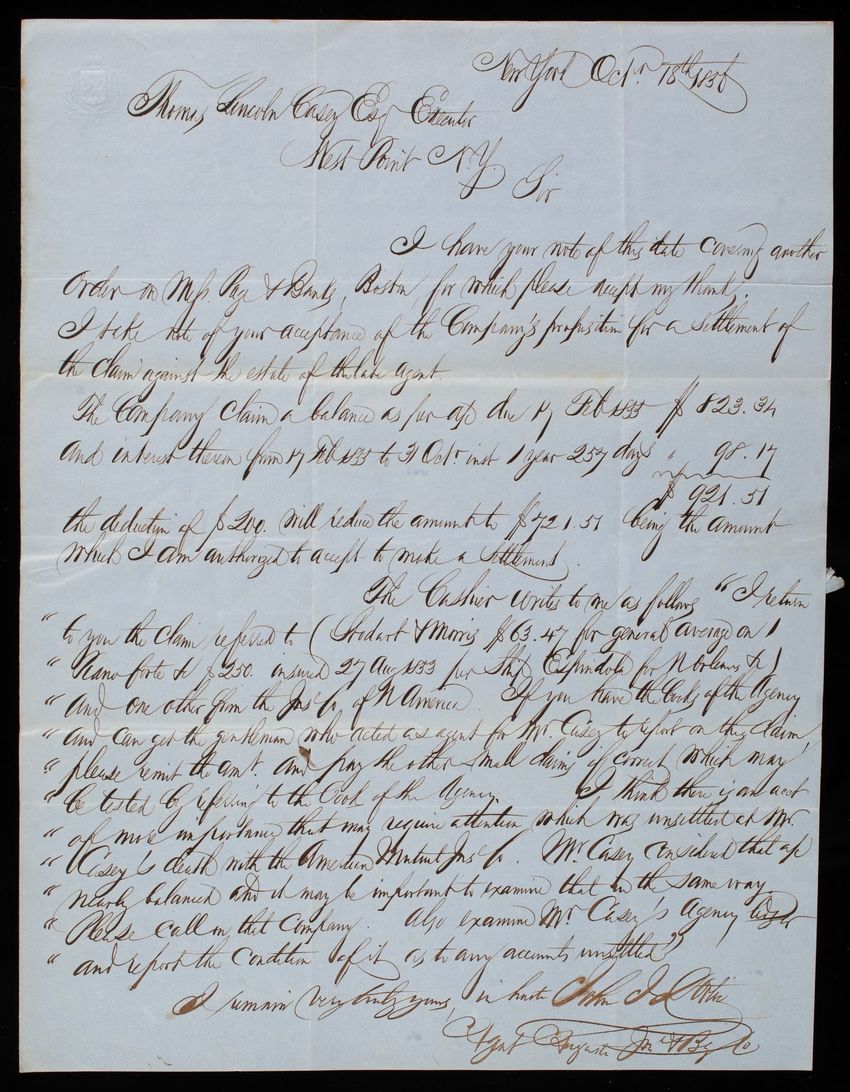 New York Octr 18th 1856
Thomas Lincoln Casey Esq Executor
West Point N.Y.
Sir
I have your note of this date covering another
Order on Mess. Page & Banks, Boston, for which please accept my thanks.
I take note of your acceptance of the Company's proposition for a settlement of
the claim against the estate of the late Agent.
The Company claim a balance as per a/c due 17 Feb 1855 $ 823.34
and interest thereon from 17 Feb 1855 to 31 Octr inst 1 year 257 days " 98.17
$ 921.51
the deduction of $200. will reduce the amount to $721.51 being the amount
which I am authorized to accept to make a settlement.
The Cashier writes to me as follows "I return
" to you the claim referred to (Stodart & Morris $63.47 for general average on 1
" Piano forte &c $250. insured 27 Aug 1853 per Ship Espindola for N Orleans &c)
" and one other from the Ins Co. of N America. If you have the books of the Agency
" and can get the gentleman who acted as agent for Mr. Casey to report on this claim,
" please remit the amt. and pay the other small claims if correct which may
" be tested by referring to the book of the Agency. I think there is an acct
" of more importance that may require attention which was unsettled at Mr.
" Casey's death with the American Mutual Ins Co. Mr Casey considered that a/c
" nearly balanced and it may be important to examine that in the same way.
" Please call on that Company. Also examine Mr Casey's Agency
" and report the condition of it as to any accounts unsettled"
I remain very truly yours, in haste John J
Agent Augusta Ins & Bg Co